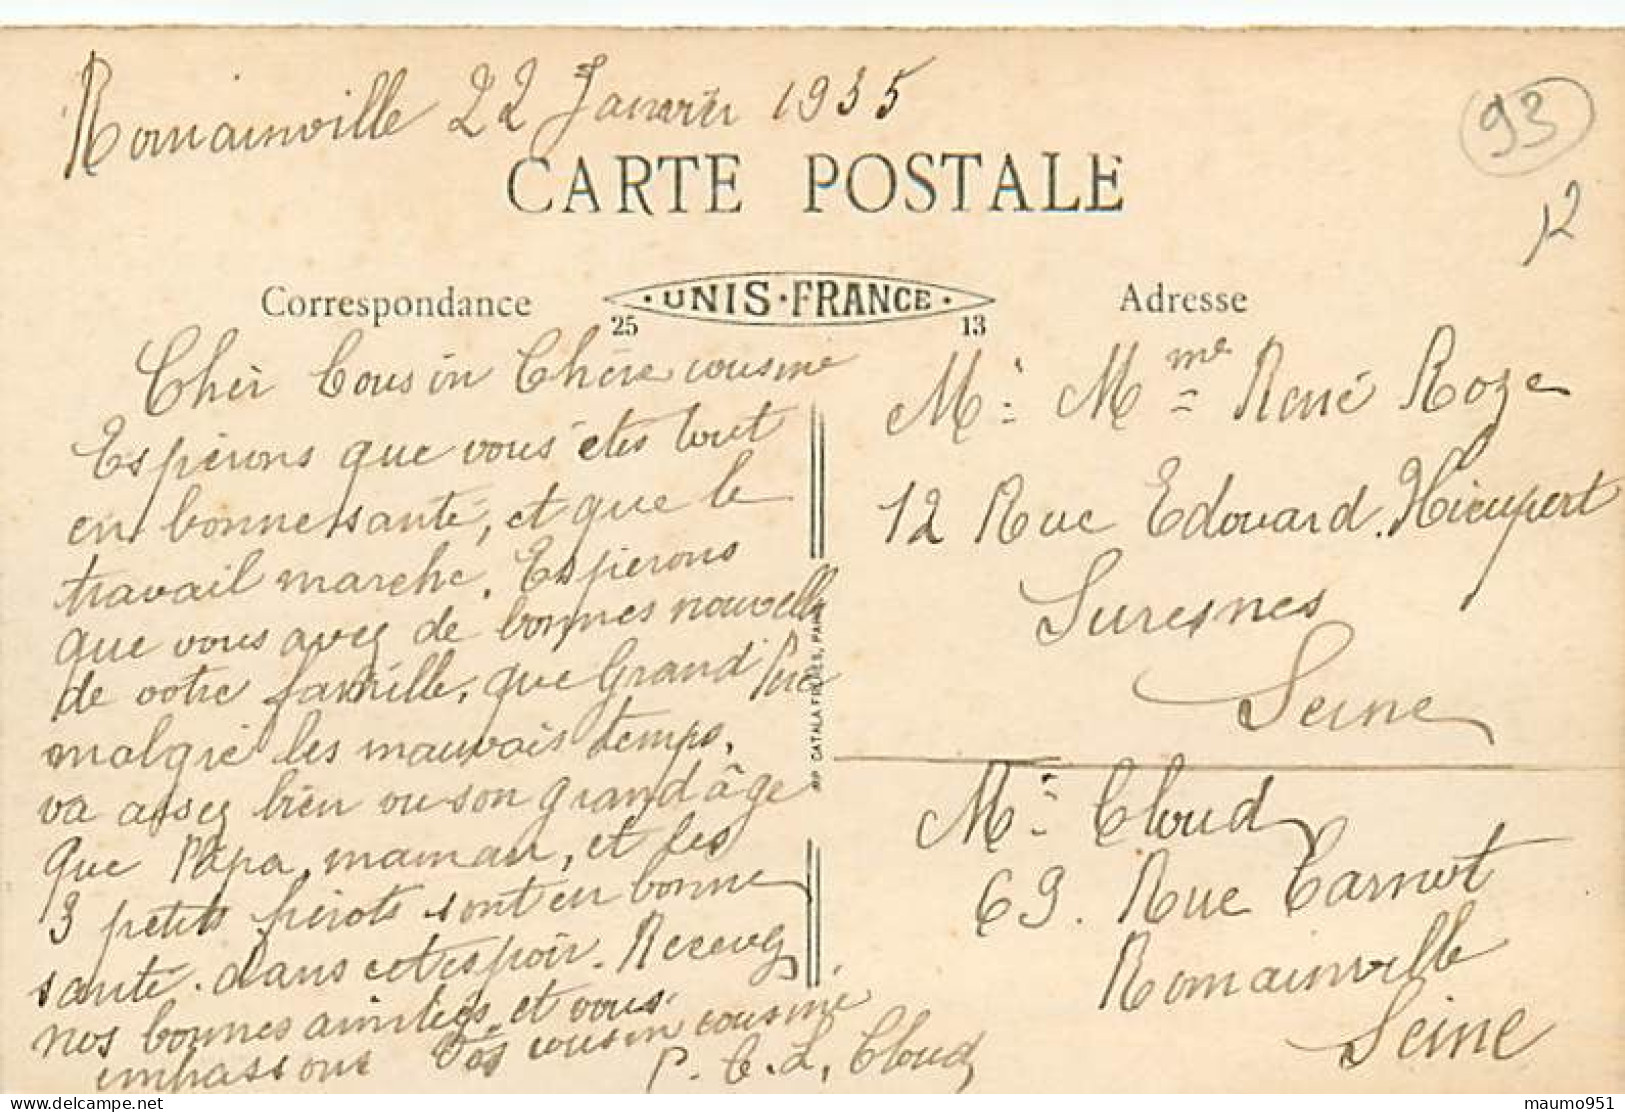 Romainville 22 Janvier 1935
93
12
CARTE POSTALE
Correspondance
UNIS · FRANCE
25 13
Adresse
Cher Cousin Chère cousine
Espérons que vous êtes tout
en bonne santé, et que le
travail marche. Espérons
que vous avez de bonnes nouvelle
de votre famille, que Grand Père
malgré les mauvais temps,
va assez bien ou son grand âge
que Papa, maman, et les
3 petits pierots sont en bonne
santé. dans cet espoir. Recevez
nos bonnes amitiés et vous
embassons Vos cousin cousine
P. C. L, Cloud
Mr Mme René Roze
12 Rue Edouard. Nieuport
Suresnes
Seine
Mr Cloud
69. Rue Carnot
Romainville
Seine
IMP. CATALA FRERES, PARIS
delcampe.net
maumo951